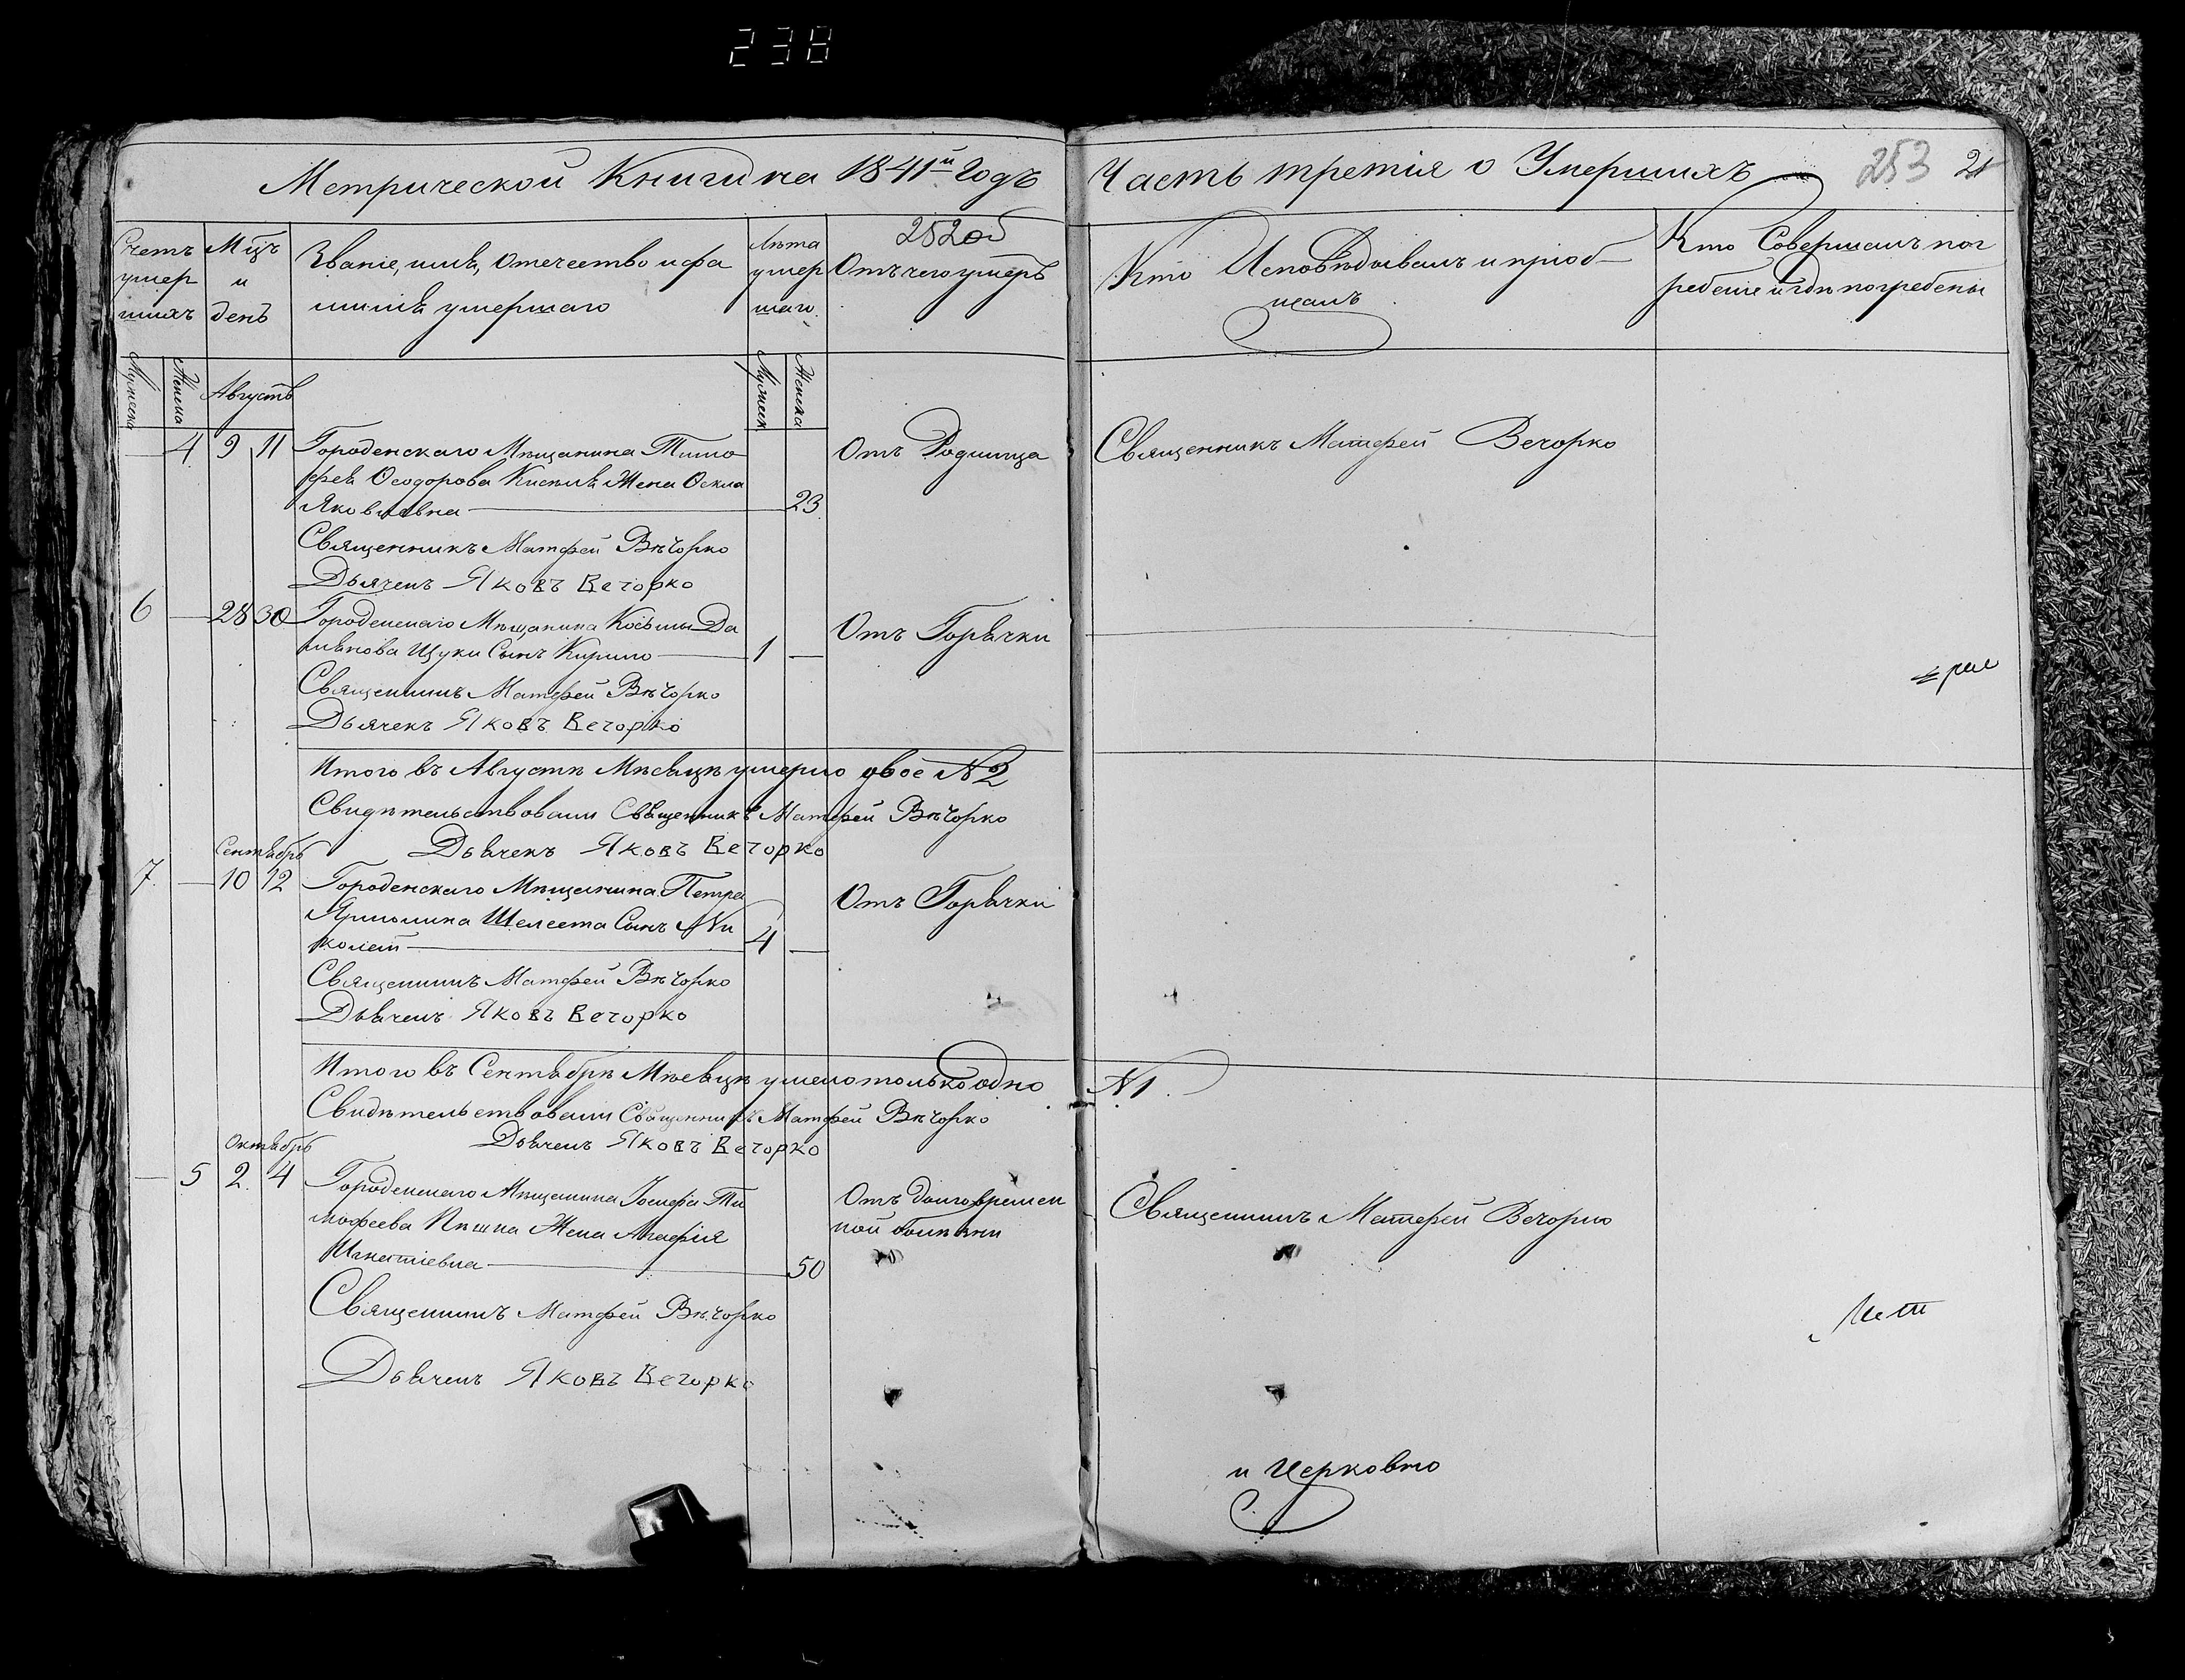 238
Метрической Книги на 1841й Годъ
Часть третія о Умершихъ
253 21
Счетъ умер шихъ
Мцъ и день
Званіе, имя, Отечество и фа
милія умершаго
Лѣта умер шаго
252об
Отъ чего умеръ
Кто Исповѣдывалъ и пріоб-
щалъ
Кто Совершалъ пог
ребеніе и гдѣ погребены
Мужеска Женска
Августъ
Мужеск Женска
4 9 11 Городенскаго Мѣщанина Тимо
фея Ѳеодорова Жена
Яковлевна 23
Отъ Родинца
Священникъ Матфей Вечорко
Священникъ Матфей Вѣчорко
Дьячекъ Яковъ Вечорко
6 28 30 Городенскаго Мѣщанина Косьмы Да
Щуки Сынъ Кирило 1
Отъ Горячки
Священникъ Матфей Вѣчорко
Дьячекъ Яковъ Вечорко
Итого въ Августѣ Мѣсяцѣ умерло двое №2
Свидѣтельствовали Священникъ Матфей Вѣчорко
Дьячекъ Яковъ Вечорко
Сентябрь
7 10 12 Городенскаго Мѣщанина Петра
Шелеста Сынъ Ни
колай 4
Отъ Горячки
Священникъ Матфей Вѣчорко
Дьячекъ Яковъ Вечорко
Итого въ Сентябрѣ Мѣсяцѣ умело только одно №1.
Свидѣтельствовали Священникъ Матфей Вѣчорко
Дьячекъ Яковъ Вечорко
Октябрь
5 2 4 Городенскаго Мѣщанина Іосифа Ти
мофеева Жена Агафія
Игнатіевна 50
Отъ долговремен
ной болѣзни
Священникъ Матфей Вечорко
Священникъ Матфей Вѣчорко
Дьячекъ Яковъ Вечорко
и Церковно